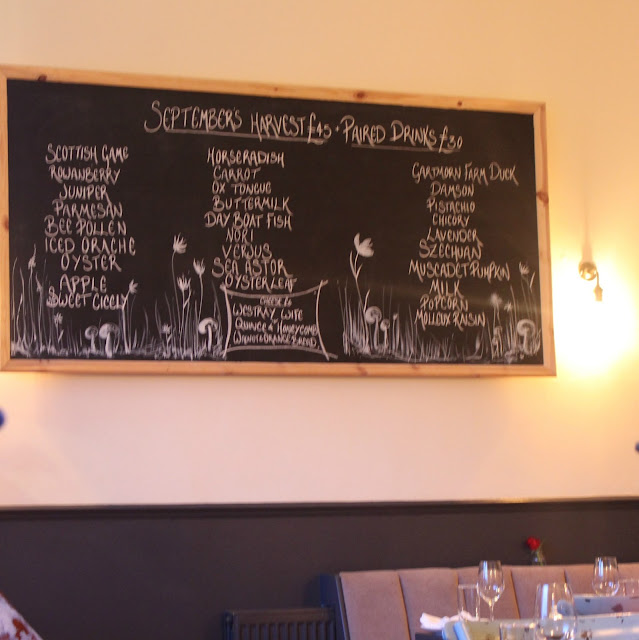 SEPTEMBER'S HARVEST £45 · PAIRED DRINKS £30
SCOTTISH GAME
ROWANBERRY
JUNIPER
PARMESAN
BEE POLLEN
ICED ORACHE
OYSTER
APPLE
SWEET CICELY
HORSERADISH
CARROT
OX TONGUE
BUTTERMILK
DAY BOAT FISH
NORI
VERJUS
SEA ASTOR
OYSTER LEAF
CHEESE
WESTRAY WIFE
QUINCE & HONEYCOMB
WALNUT & ORANGE BREAD
GARTMORN FARM DUCK
DAMSON
PISTACHIO
CHICORY
LAVENDER
SZECHUAN
MUSCADET PUMPKIN
MILK
POPCORN
MOLLEUX RAISIN